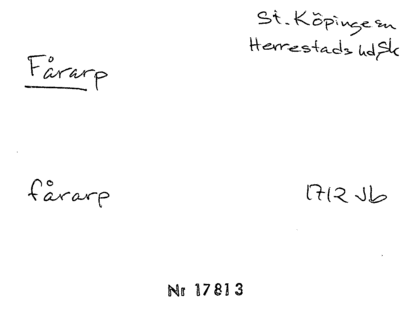 St. Köpinge sn
Herrestads hd, Sk
Fårarp
fårarp 1712 Jb
Nr 17813